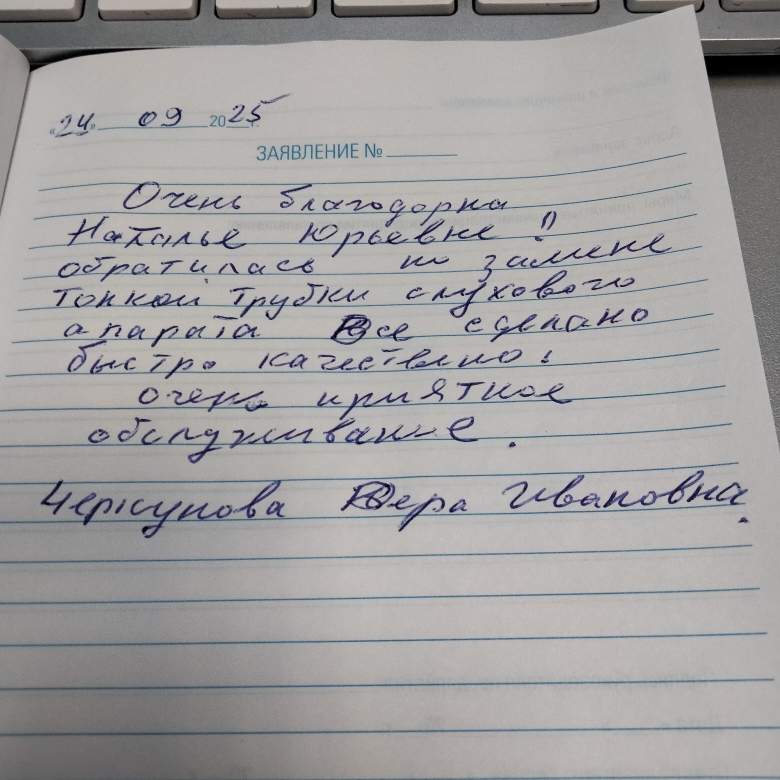 «24» 09 2025 г.
ЗАЯВЛЕНИЕ №
Очень благодорна
Наталье Юрьевне!!
обратилась по замене
тонкой трубки слухового
апарата Все сделано
быстро качествено.
очень приятное
обслуживание.
Черкунова Вера Ивановна.